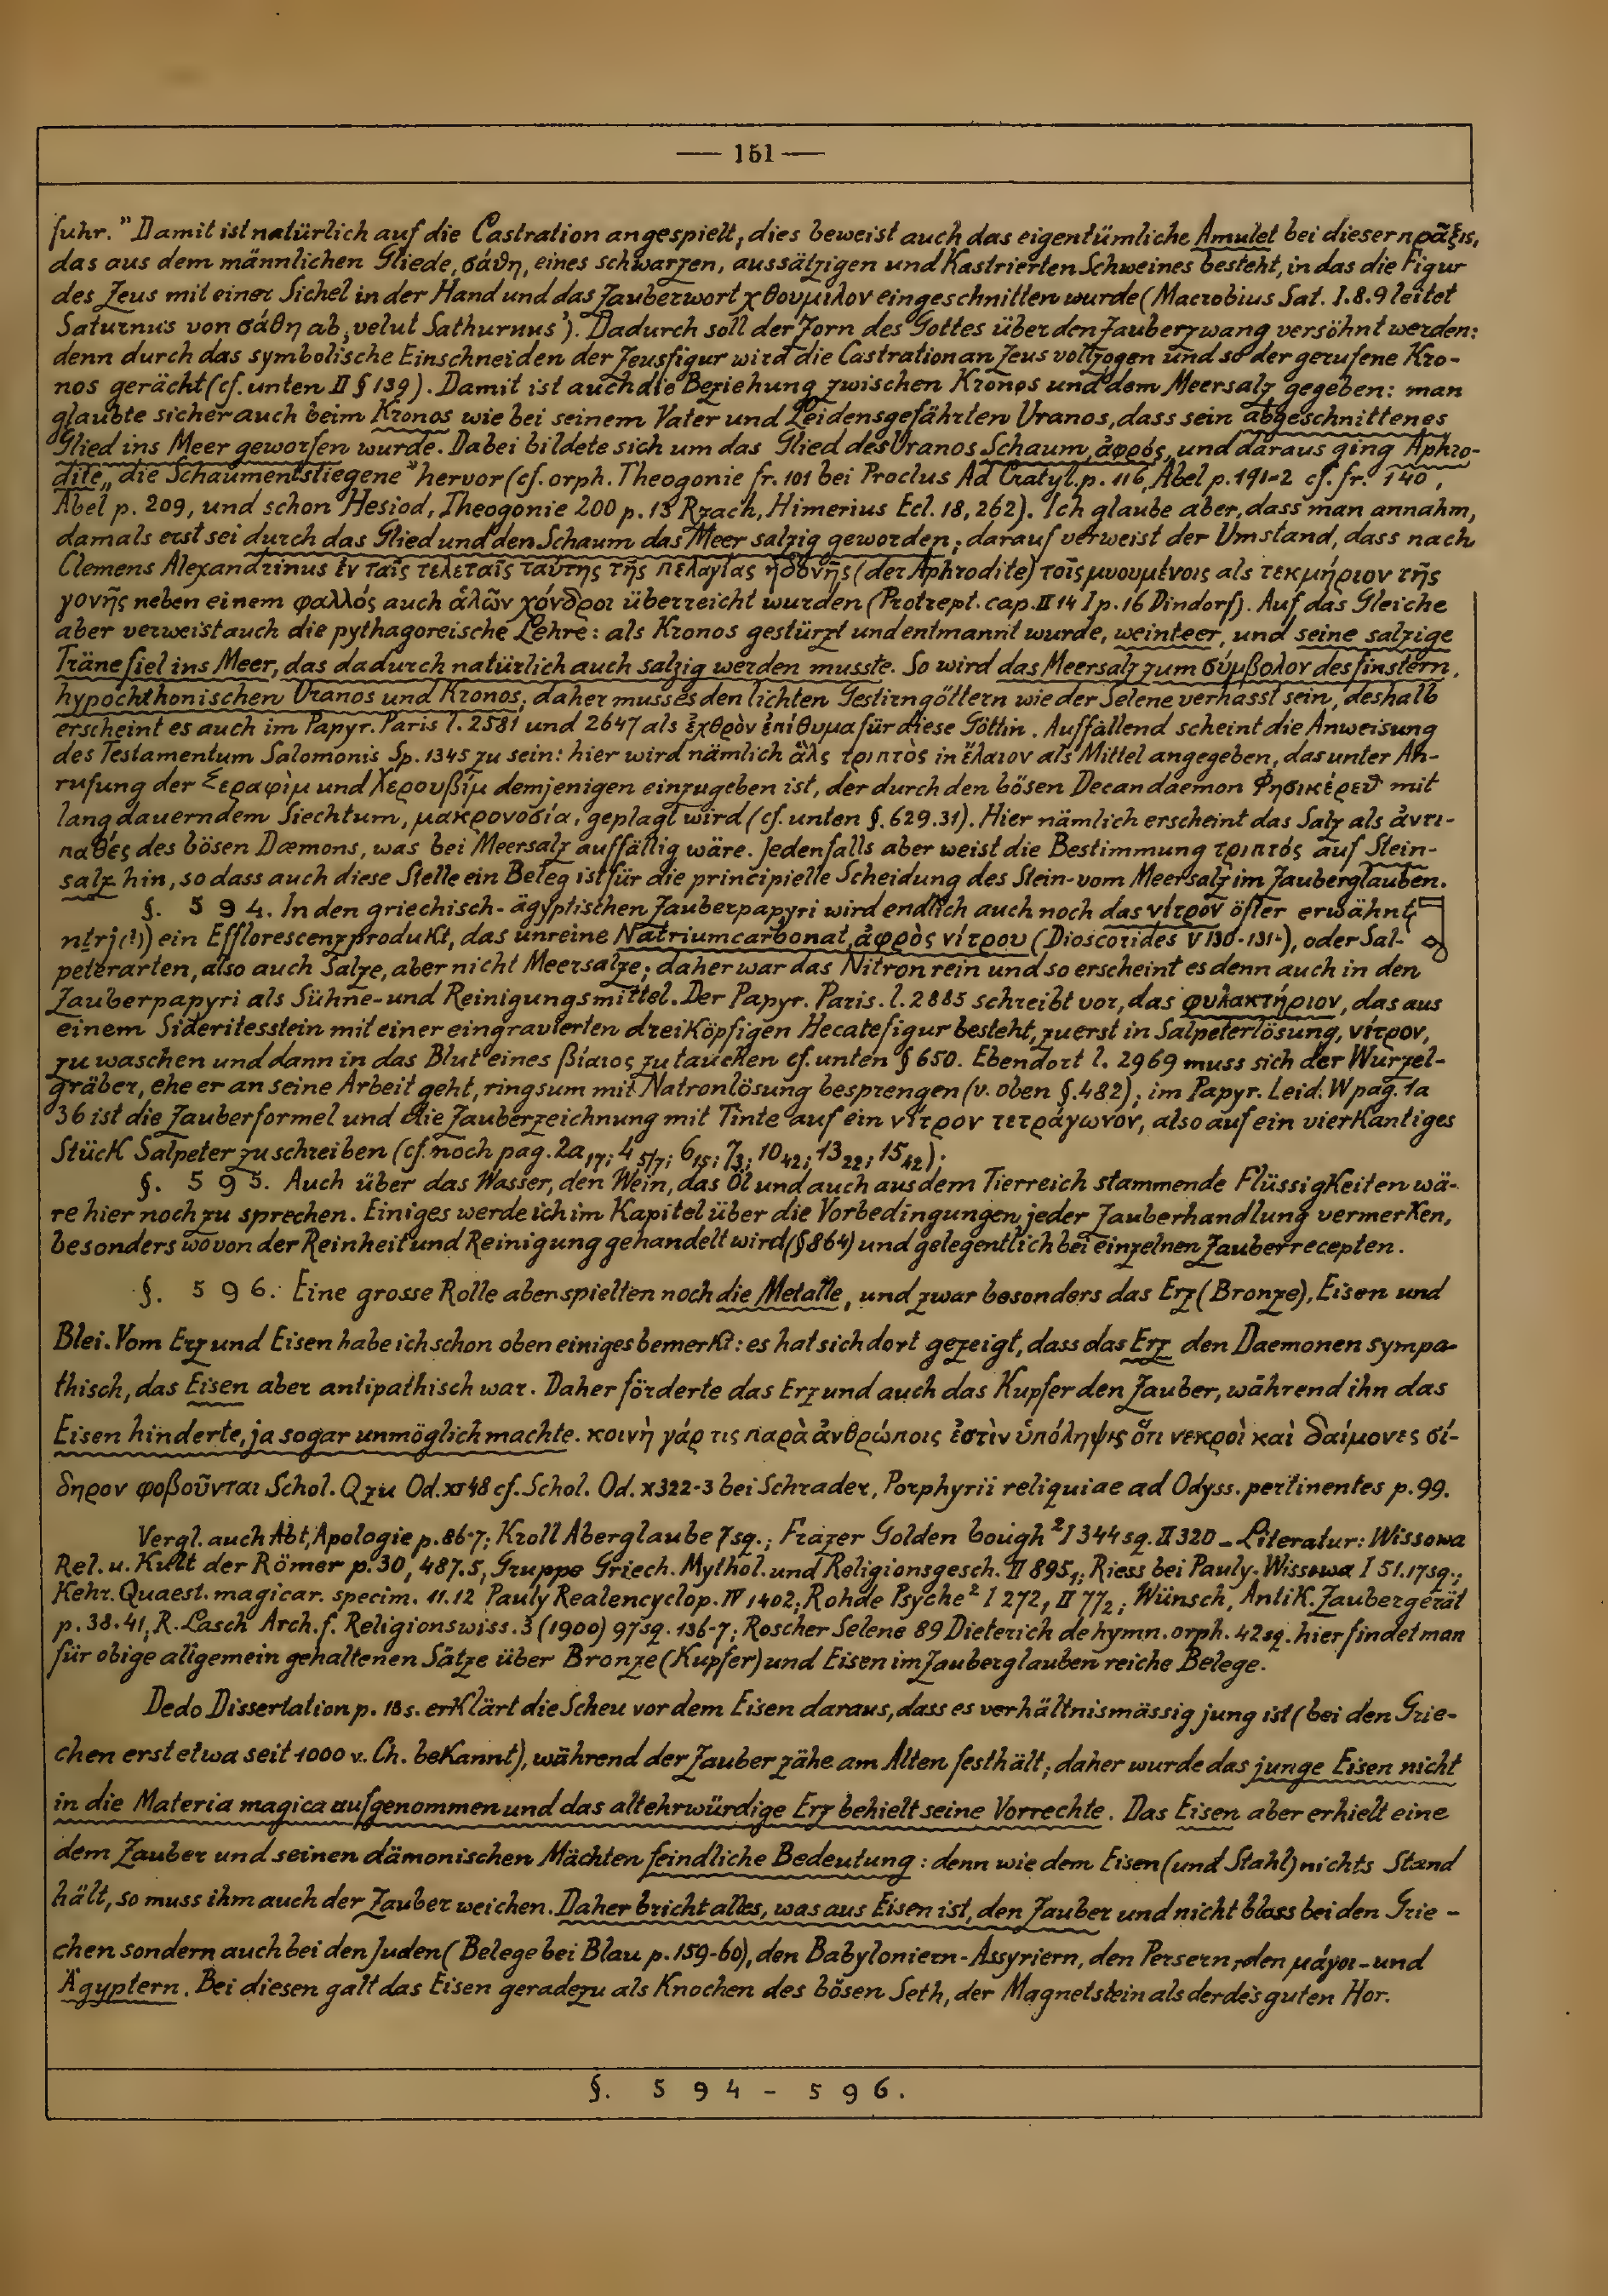 — 151 —
fuhr." Damit ist natürlich auf die Castration angespielt, dies beweist auch das eigentümliche Amulet bei dieser πρᾶξις,
das aus dem männlichen Gliede, σάθη, eines schwarzen, aussätzigen und Kastrierten Schweines besteht, in das die Figur
des Zeus mit einer Sichel in der Hand und das Zauberwort χθουμιλον eingeschnitten wurde (Macrobius Sat. I.8.9 leitet
Saturnus von σάθη ab, velut Sathurnus'). Dadurch soll der Zorn des Gottes über den Zauberzwang versöhnt werden:
denn durch das symbolische Einschneiden der Zeusfigur wird die Castration an Zeus vollzogen und so der gerufene Kro-
nos gerächt (cf. unten II § 139). Damit ist auch die Beziehung zwischen Kronos und dem Meersalz gegeben: man
glaubte sicher auch beim Kronos wie bei seinem Vater und Leidensgefährten Uranos, dass sein abgeschnittenes
Glied ins Meer geworfen wurde. Dabei bildete sich um das Glied des Uranos Schaum, ἀφρός, und daraus ging Aphro-
dite „die Schaumentstiegene" hervor (cf. orph. Theogonie fr. 101 bei Proclus Ad Cratyl. p. 116, Abel p. 191-2 cf. fr. 140,
Abel p. 209, und schon Hesiod, Theogonie 200 p. 13 Rzach, Himerius Ecl. 18, 262). Ich glaube aber, dass man annahm,
damals erst sei durch das Glied und den Schaum das Meer salzig geworden; darauf verweist der Umstand, dass nach
Clemens Alexandrinus ἐν ταῖς τελεταῖς ταύτης τῆς πελαγίας ἡδονῆς (der Aphrodite) τοῖς μυουμένοις als τεκμήριον τῆς
γονῆς neben einem φαλλός auch ἁλῶν χόνδροι überreicht wurden (Protrept. cap. II 14 I p. 16 Dindorf). Auf das Gleiche
aber verweist auch die pythagoreische Lehre: als Kronos gestürzt und entmannt wurde, weinte er, und seine salzige
Träne fiel ins Meer, das dadurch natürlich auch salzig werden musste. So wird das Meersalz zum σύμβολον des finstern,
hypochthonischen Uranos und Kronos; daher muss es den lichten Gestirngöttern wie der Selene verhasst sein, deshalb
erscheint es auch im Papyr. Paris l. 2581 und 2647 als ἐχθρὸν ἐπίθυμα für diese Göttin. Auffallend scheint die Anweisung
des Testamentum Salomonis Sp. 1345 zu sein: hier wird nämlich ἅλς τριπτὸς in ἔλαιον als Mittel angegeben, das unter An-
rufung der Σεραφὶμ und Χερουβίμ demjenigen einzugeben ist, der durch den bösen Decandaemon Φησικέρεθ mit
langdauerndem Siechtum, μακρονοσία, geplagt wird (cf. unten §. 629.31). Hier nämlich erscheint das Salz als ἀντι-
παθές des bösen Dæmons, was bei Meersalz auffällig wäre. Jedenfalls aber weist die Bestimmung τριπτός auf Stein-
salz hin, so dass auch diese Stelle ein Beleg ist für die principielle Scheidung des Stein- vom Meersalz im Zauberglauben.
§. 594. In den griechisch-ägyptischen Zauberpapyri wird endlich auch noch das νίτρον öfter erwähnt
ntrj(?)) ein Efflorescenzprodukt, das unreine Natriumcarbonat, ἀφρὸς νίτρου (Dioscorides V 130-131), oder Sal-
peterarten, also auch Salze, aber nicht Meersalze; daher war das Nitron rein und so erscheint es denn auch in den
Zauberpapyri als Sühne- und Reinigungsmittel. Der Papyr. Paris. l. 2885 schreibt vor, das φυλακτήριον, das aus
einem Sideritesstein mit einer eingravierten dreiKöpfigen Hecatefigur besteht, zuerst in Salpeterlösung, νίτρον,
zu waschen und dann in das Blut eines βίαιος zu tauchen cf. unten § 650. Ebendort l. 2969 muss sich der Wurzel-
gräber, ehe er an seine Arbeit geht, ringsum mit Natronlösung besprengen (v. oben §. 482); im Papyr. Leid. W pag. 1a
36 ist die Zauberformel und die Zauberzeichnung mit Tinte auf ein νίτρον τετράγωνον, also auf ein vierKantiges
StücK Salpeter zu schreiben (cf. noch pag. 2a 17; 4 5/7; 6 15; 7 3; 10 42; 13 22; 15 42).
§. 595. Auch über das Wasser, den Wein, das Öl und auch aus dem Tierreich stammende FlüssigKeiten wä-
re hier noch zu sprechen. Einiges werde ich im Kapitel über die Vorbedingungen jeder Zauberhandlung vermerKen,
besonders wo von der Reinheit und Reinigung gehandelt wird (§ 864) und gelegentlich bei einzelnen Zauberrecepten.
§. 596. Eine grosse Rolle aber spielten noch die Metalle, und zwar besonders das Erz (Bronze), Eisen und
Blei. Vom Erz und Eisen habe ich schon oben einiges bemerkt: es hat sich dort gezeigt, dass das Erz den Daemonen sympa-
thisch, das Eisen aber antipathisch war. Daher förderte das Erz und auch das Kupfer den Zauber, während ihn das
Eisen hinderte, ja sogar unmöglich machte. κοινὴ γάρ τις παρὰ ἀνθρώποις ἐστὶν ὑπόληψις ὅτι νεκροὶ καὶ δαίμονες σί-
δηρον φοβοῦνται Schol. Q zu Od. XI 48 cf. Schol. Od. X 322-3 bei Schrader, Porphyrii reliquiae ad Odyss. pertinentes p. 99.
Vergl. auch Abt, Apologie p. 86-7; Kroll Aberglaube 7 sq.; Frazer Golden bough² I 344 sq. II 320 – Literatur: Wissowa
Rel. u. Kult der Römer p. 30, 487.5, Gruppe Griech. Mythol. und Religionsgesch. II 895,; Riess bei Pauly-Wissowa I 51.17 sq.;
Kehr. Quaest. magicar. specim. 11.12 Pauly Realencyclop. IV 1402; Rohde Psyche² I 272, II 77 2; Wünsch, Antik. Zaubergerät
p. 38.41, R. Lasch Arch. f. Religionswiss. 3 (1900) 97 sq. 136-7; Roscher Selene 89 Dieterich de hymn. orph. 42 sq. hier findet man
für obige allgemein gehaltenen Sätze über Bronze (Kupfer) und Eisen im Zauberglauben reiche Belege.
Dedo Dissertation p. 18 s. erKlärt die Scheu vor dem Eisen daraus, dass es verhältnismässig jung ist (bei den Grie-
chen erst etwa seit 1000 v. Ch. beKannt), während der Zauber zähe am Alten festhält; daher wurde das junge Eisen nicht
in die Materia magica aufgenommen und das altehrwürdige Erz behielt seine Vorrechte. Das Eisen aber erhielt eine
dem Zauber und seinen dämonischen Mächten feindliche Bedeutung: denn wie dem Eisen (und Stahl) nichts Stand
hält, so muss ihm auch der Zauber weichen. Daher bricht alles, was aus Eisen ist, den Zauber und nicht bloss bei den Grie-
chen sondern auch bei den Juden (Belege bei Blau p. 159-60), den Babyloniern-Assyriern, den Persern, den μάγοι- und
Ägyptern. Bei diesen galt das Eisen geradezu als Knochen des bösen Seth, der Magnetstein als der des guten Hor.
§. 594 - 596.